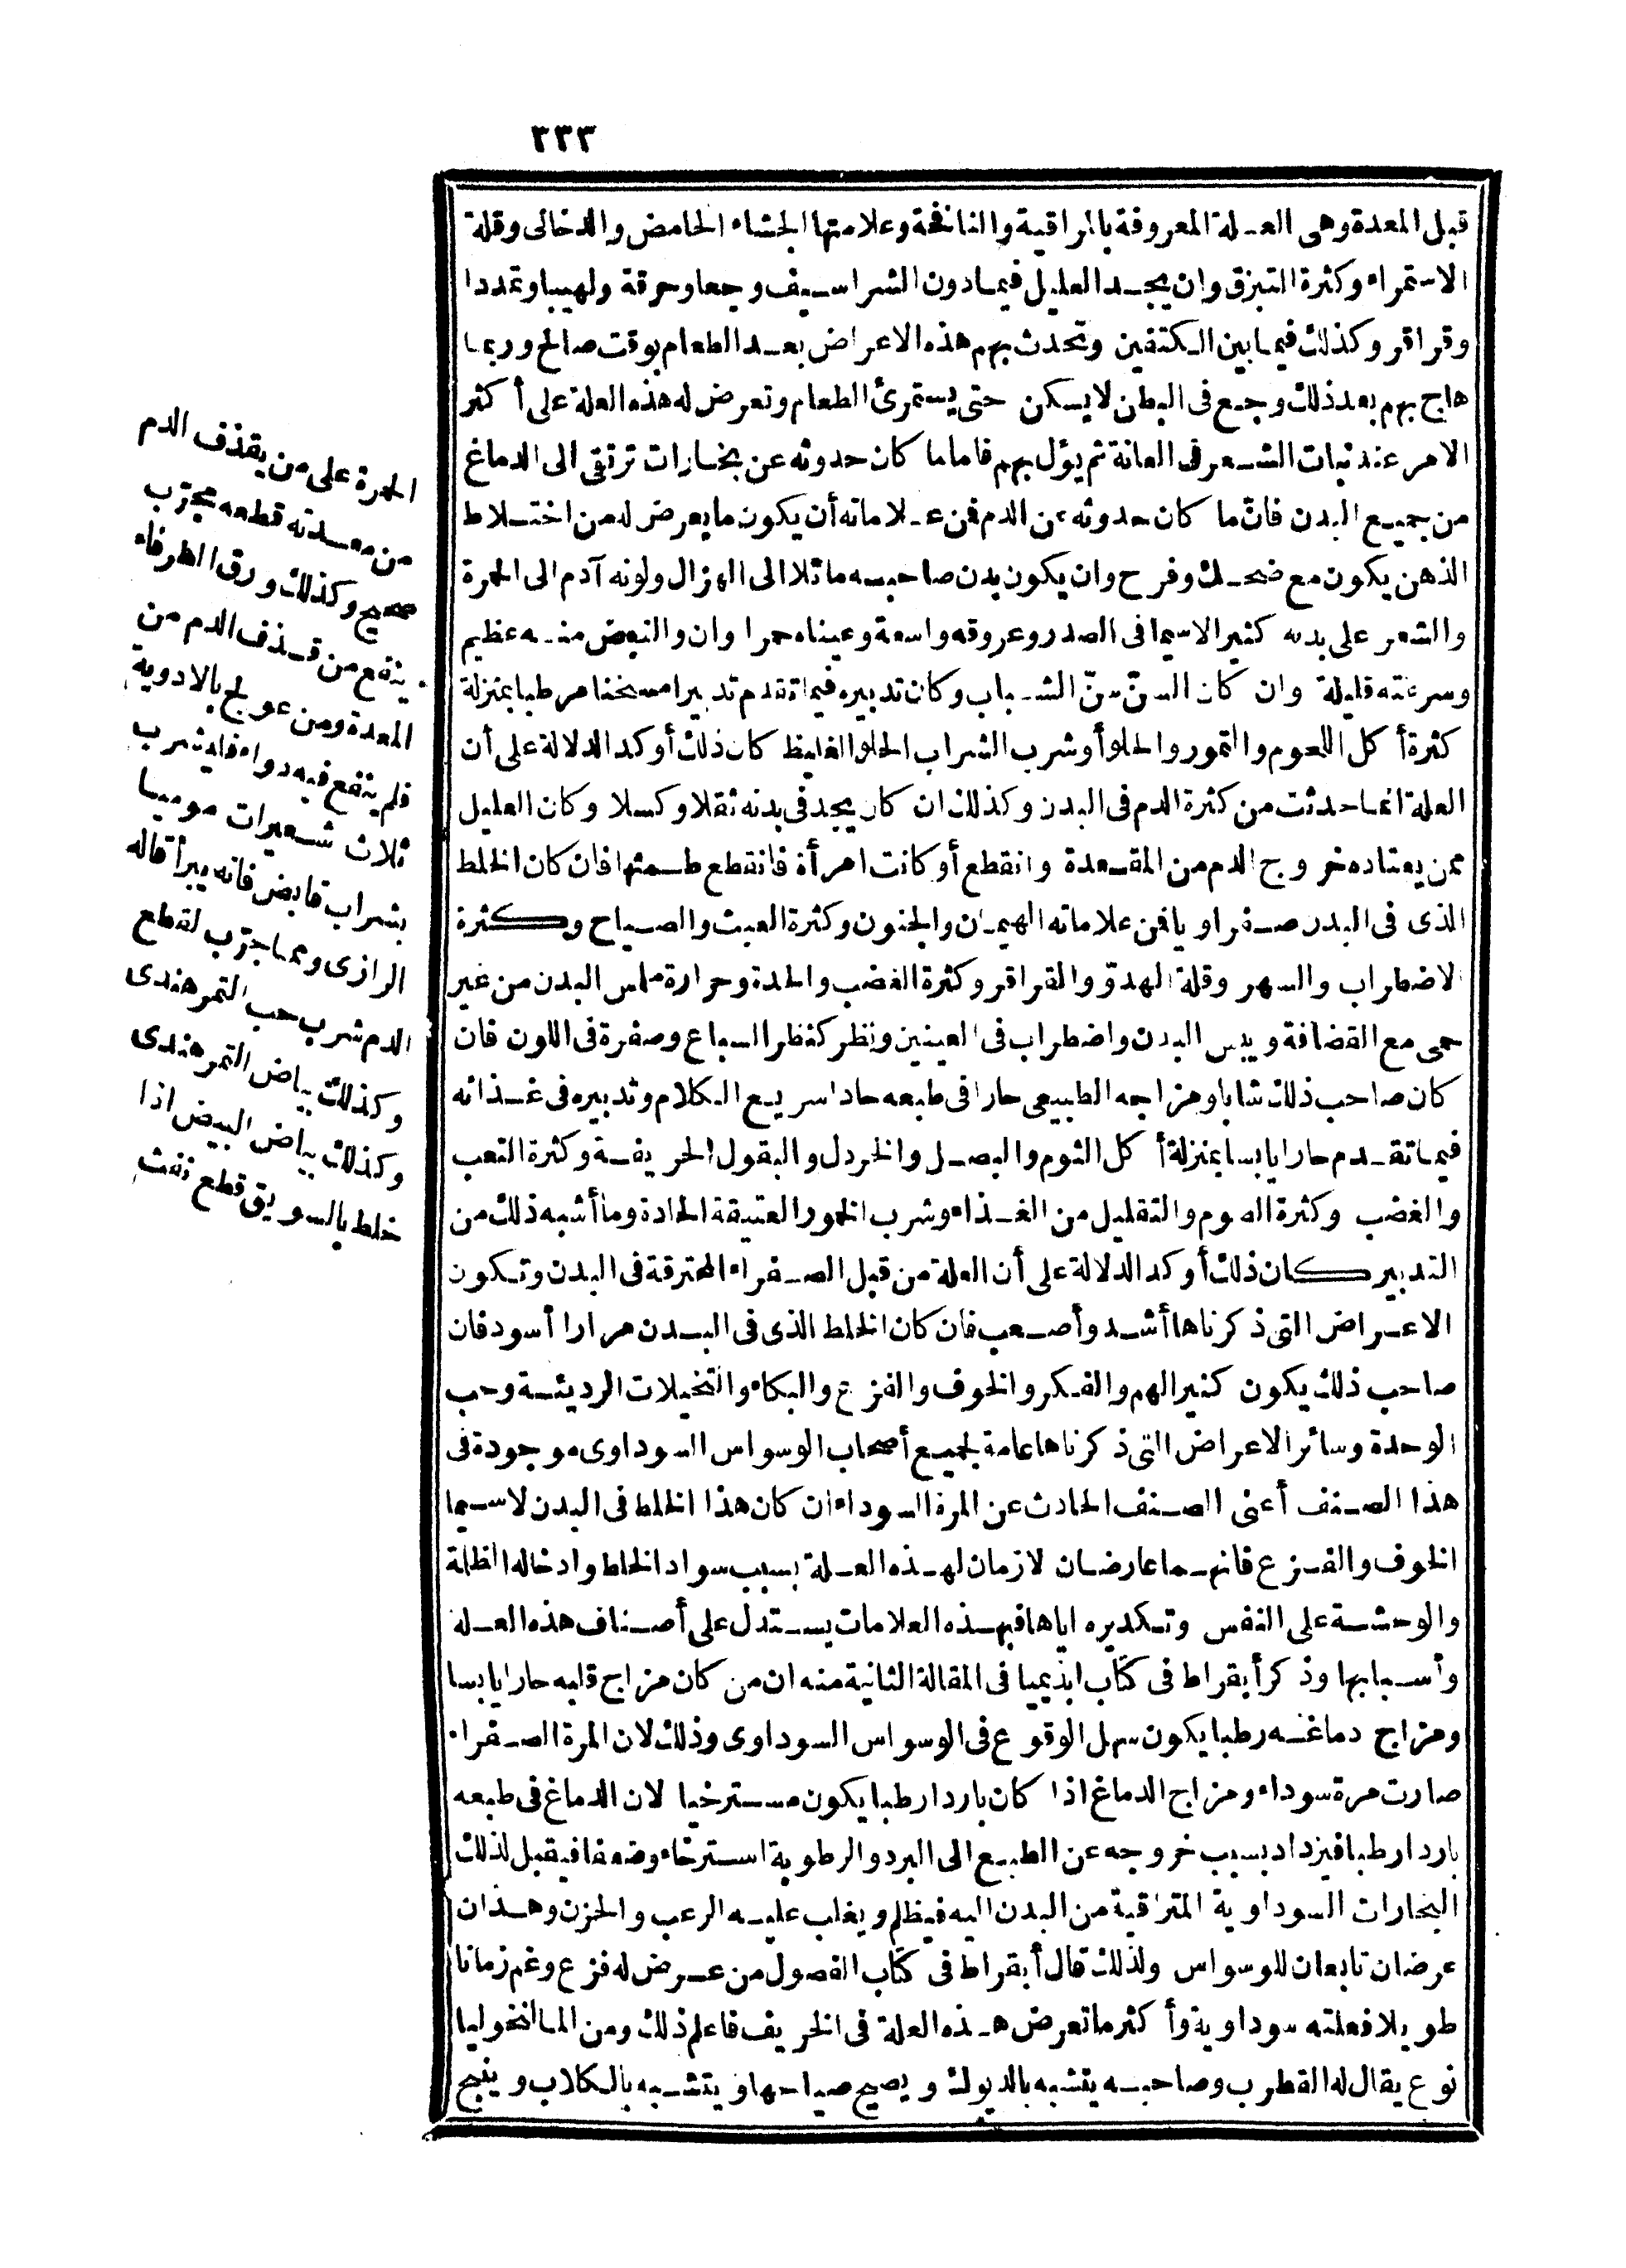 ٣٣٣
قبل المعدة وهى العلة المعروفة بالمراقية والنافخة وعلامتها الجشاء الحامض والدخانى وقلة
الاستمراء وكثرة التبزق وان يجد العليل فيمادون الشراسيف وجعا وحرقة ولهيبا وتمددا
وقراقر وكذلك فيما بين الكتفين وتحدث بهم هذه الاعراض بعد الطعام بوقت صالح وربما
هاج بهم بعد ذلك وجع فى البطن لا يسكن حتى يستمرئ الطعام وتعرض له هذه العلة على أكثر
الامر عند نبات الشعر فى العانة ثم يؤل بهم فاما ما كان حدوثه عن بخارات ترتقى الى الدماغ
من جميع البدن فانّ ما كان حدوثه عن الدم فمن علاماته أن يكون ما يعرض له من اختلاط
الذهن يكون مع ضحك وفرح وان يكون بدن صاحبه مائلا الى الهزال ولونه آدم الى الحمرة
والشعر على بدنه كثير الاسيما فى الصدر وعروقه واسعة وعيناه حمراوان والنبض منه عظيم
وسرعته قليلة وان كان السنّ سنّ الشباب وكان تدبيره فيما تقدم تدبيرا مسخنا مرطبا بمنزلة
كثرة أكل اللحوم والتمور والحلو أو شرب الشراب الحلو الغليظ كان ذلك أوكد الدلالة على أن
العلة انما حدثت من كثرة الدم فى البدن وكذلك ان كان يجد فى بدنه ثقلا وكسلا وكان العليل
ممن يعتاده خروج الدم من المقعدة وانقطع أو كانت امرأة فانقطع طمثها فان كان الخلط
الذى فى البدن صفراويا فمن علاماته الهيمان والجنون وكثرة العبث والصياح وكثرة
الاضطراب والسهر وقلة الهدوّ والقراقر وكثرة الغضب والحدة وحرارة ملمس البدن من غير
حمى مع القضافة ويبس البدن واضطراب فى العينين ونظر كنظر السباع وصفرة فى اللون فان
كان صاحب ذلك شابا ومزاجه الطبيعى حارا فى طبعه حادا سريع الكلام وتدبيره فى غذائه
فيما تقدم حارا يابسا بمنزلة أكل الثوم والبصل والخردل والبقول الحريفة وكثرة التعب
والغضب وكثرة الصوم والتقليل من الغذاء وشرب الخمور العتيقة الحادة وما أشبه ذلك من
التدبير كان ذلك أوكد الدلالة على أن العلة من قبل الصفراء المحترقة فى البدن وتكون
الاعراض التى ذكرناها أشد وأصعب فان كان الخلط الذى فى البدن مرارا أسود فان
صاحب ذلك يكون كثير الهم والفكر والخوف والفزع والبكاء والتخيلات الرديئة وحب
الوحدة وسائر الاعراض التى ذكرناها عامة لجميع أصحاب الوسواس السوداوى موجودة فى
هذا الصنف أعنى الصنف الحادث عن المرة السوداء ان كان هذا الخلط فى البدن لاسيما
الخوف والفزع فانهما عارضان لازمان لهذه العلة بسبب سواد الخلط وادخاله الظلمة
والوحشة على النفس وتكديره اياها فبهذه العلامات يستدل على أصناف هذه العلة
وأسبابها وذكر أبقراط فى كتاب ابذيميا فى المقالة الثانية منه ان من كان مزاج قلبه حارا يابسا
ومزاج دماغه رطبا يكون سهل الوقوع فى الوسواس السوداوى وذلك لان المرة الصفراء
صارت مرة سوداء ومزاج الدماغ اذا كان باردا رطبا يكون مسترخيا لان الدماغ فى طبعه
باردا رطبا فيزداد بسبب خروجه عن الطبع الى البرد والرطوبة استرخاء وضعفا فيقبل لذلك
البخارات السوداوية المتراقية من البدن اليه فيظلم ويغلب عليه الرعب والحزن وهذان
عرضان تابعان للوسواس ولذلك قال أبقراط فى كتاب الفصول من عرض له فزع وغم زمانا
طويلا فعلته سوداوية وأكثر ما تعرض هذه العلة فى الخريف فاعلم ذلك ومن المالنخوليا
نوع يقال له القطرب وصاحبه يتشبه بالديوك ويصيح صياحها ويتشبه بالكلاب وينبح
الحمرة على من يقذف الدم
من معدته قطعه مجرّب
صحيح وكذلك ورق الطرفاء
ينفع من قذف الدم من
المعدة ومن عولج بالادوية
فلم ينفع فيه دواء فليشرب
ثلاث شعيرات موميا
بشراب قابض فانه يبرأ قاله
الرازى ومما جرّب لقطع
الدم شرب حب التمرهندى
وكذلك بياض التمرهندى
وكذلك بياض البيض اذا
خلط بالسويق قطع نفث